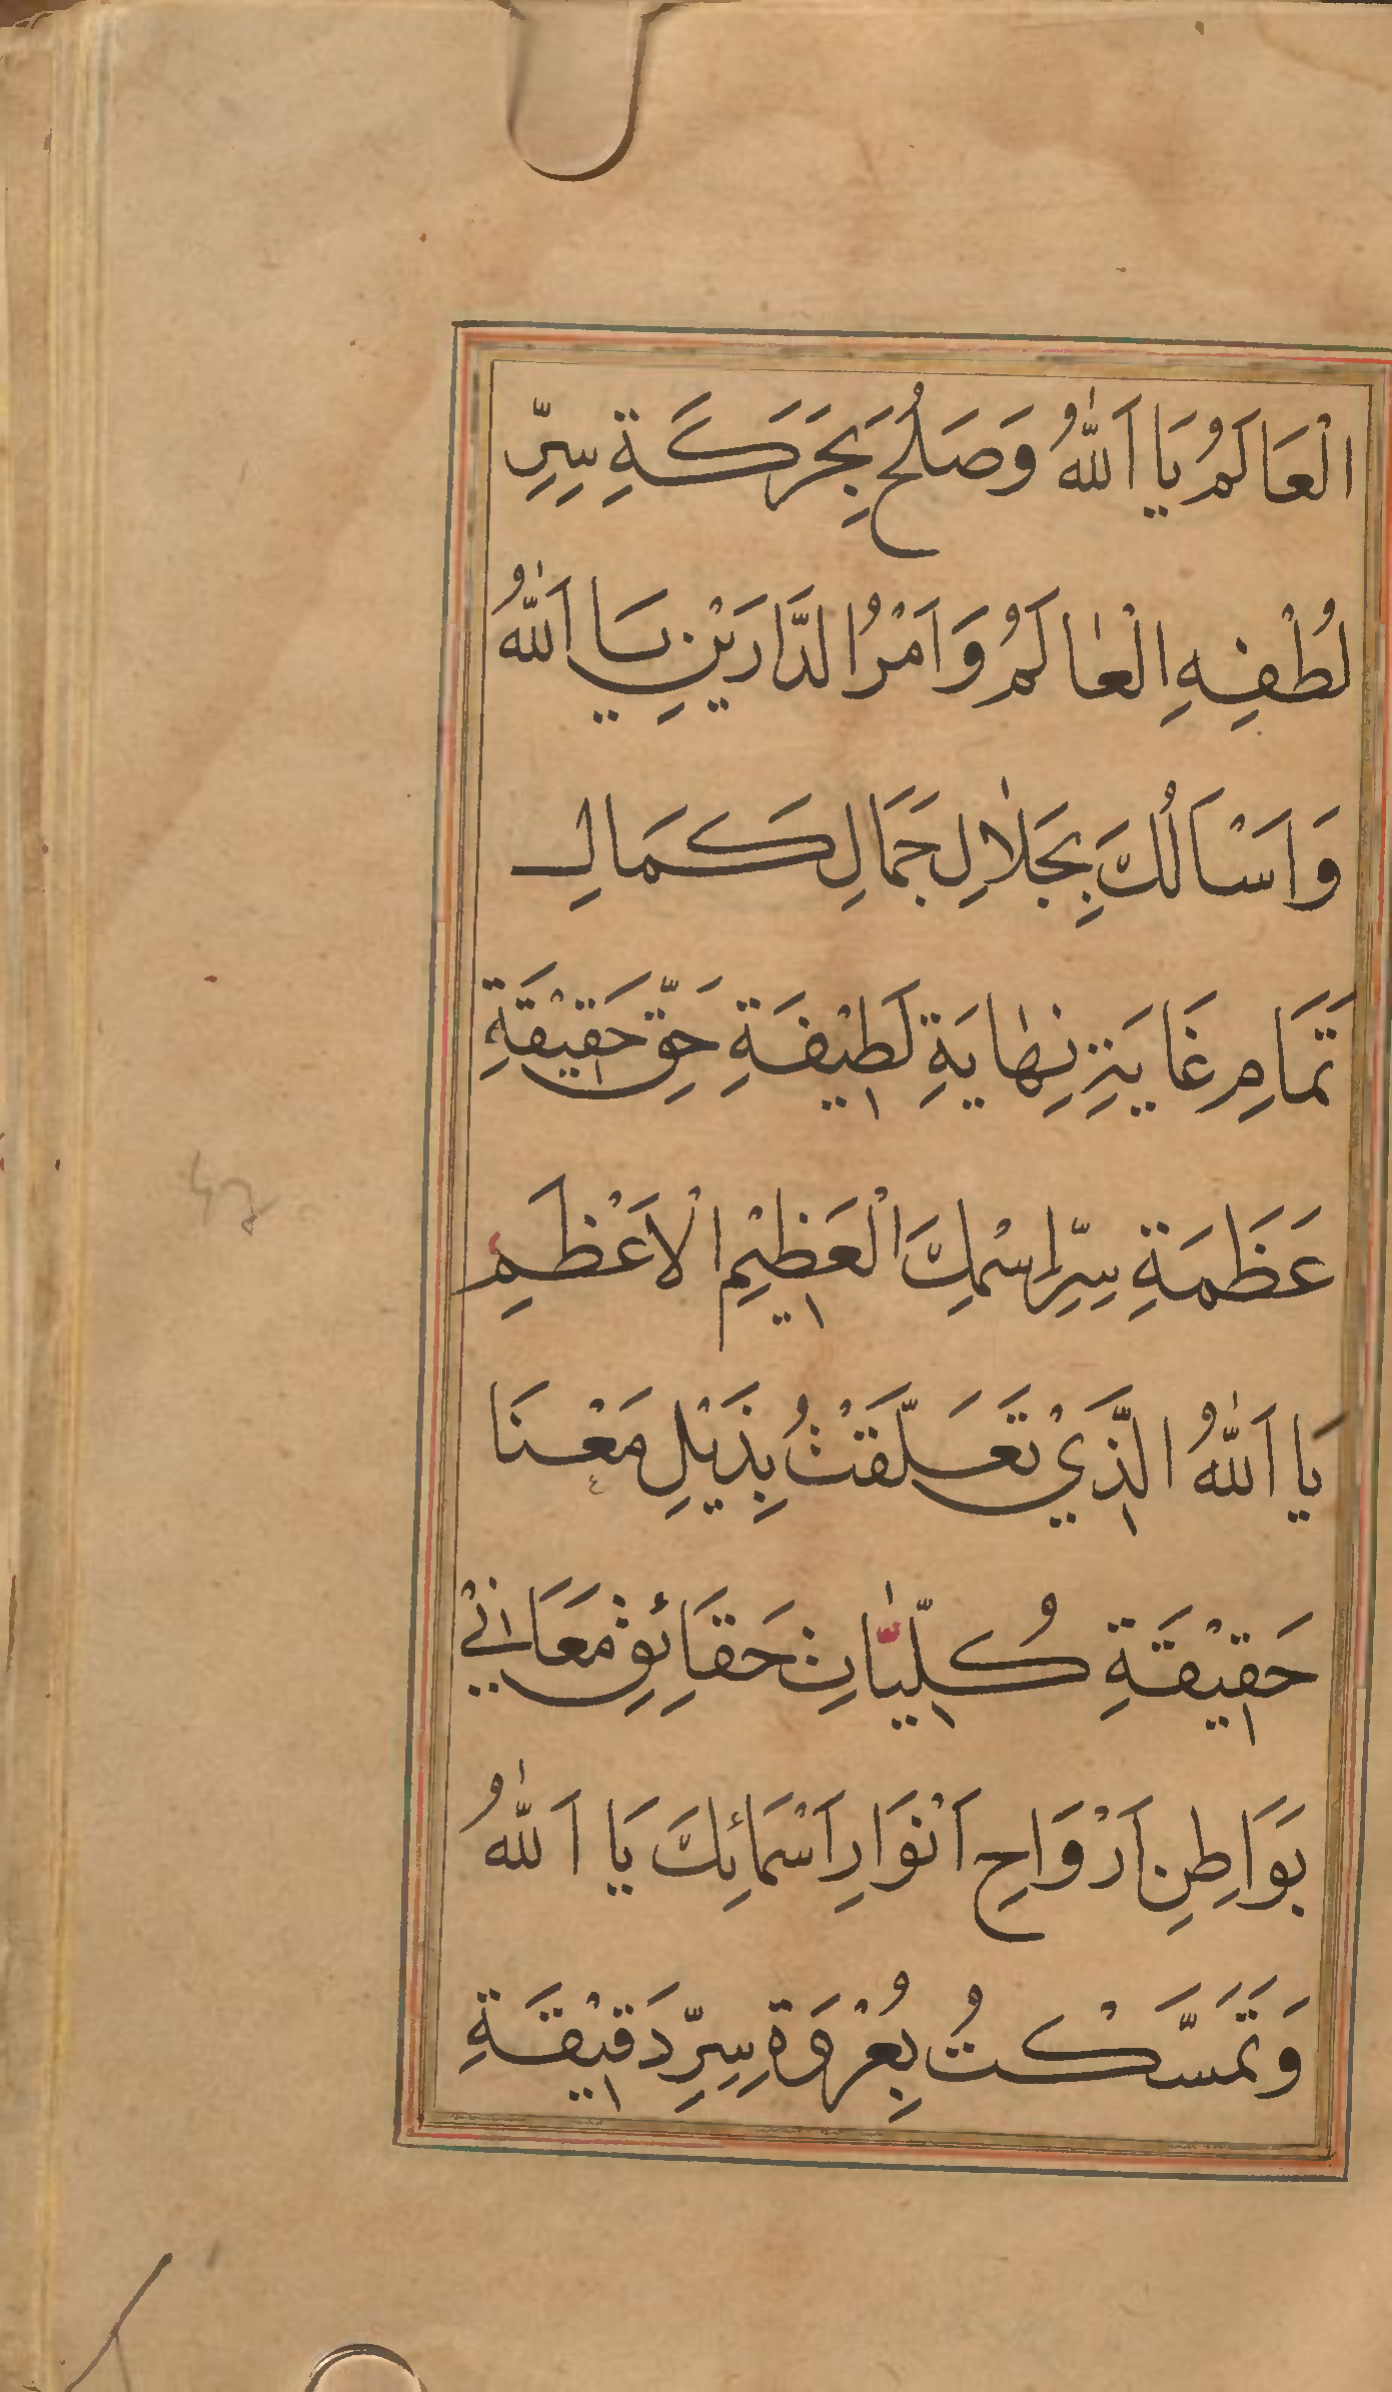 الْعَالَمُ يَا اَللّٰهُ وَصَلُحَ بِحَرَكَةِ سِرِّ
لُطْفِهِ الْعٰالَمُ وَاَمْرُ الدَّارَيْنِ يَا اَللّٰهُ
وَاَسْاَلُكَ بِجَلٰالِ جَمَالِ كَمَالِ
تَمَامِ غَايَةِ نِهٰايَةِ لَطِيْفَةِ حَقِّ حَقِيْقَةِ
عَظَمَةِ سِرِّ اسْمِكَ الْعَظِيْمِ الْاَعْظَمِ
يَا اَللّٰهُ الَّذِيْ تَعَلَّقَتْ بِذَيْلِ مَعْنَا
حَقِيْقَةِ كُلِّيّٰاتِ حَقَائِقِ مَعَانِيْ
بَوَاطِنِ اَرْوَاحِ اَنْوَارِ اَسْمَائِكَ يَا اَللّٰهُ
وَتَمَسَّكْتُ بِعُرْوَةِ سِرِّ دَقِيْقَةِ